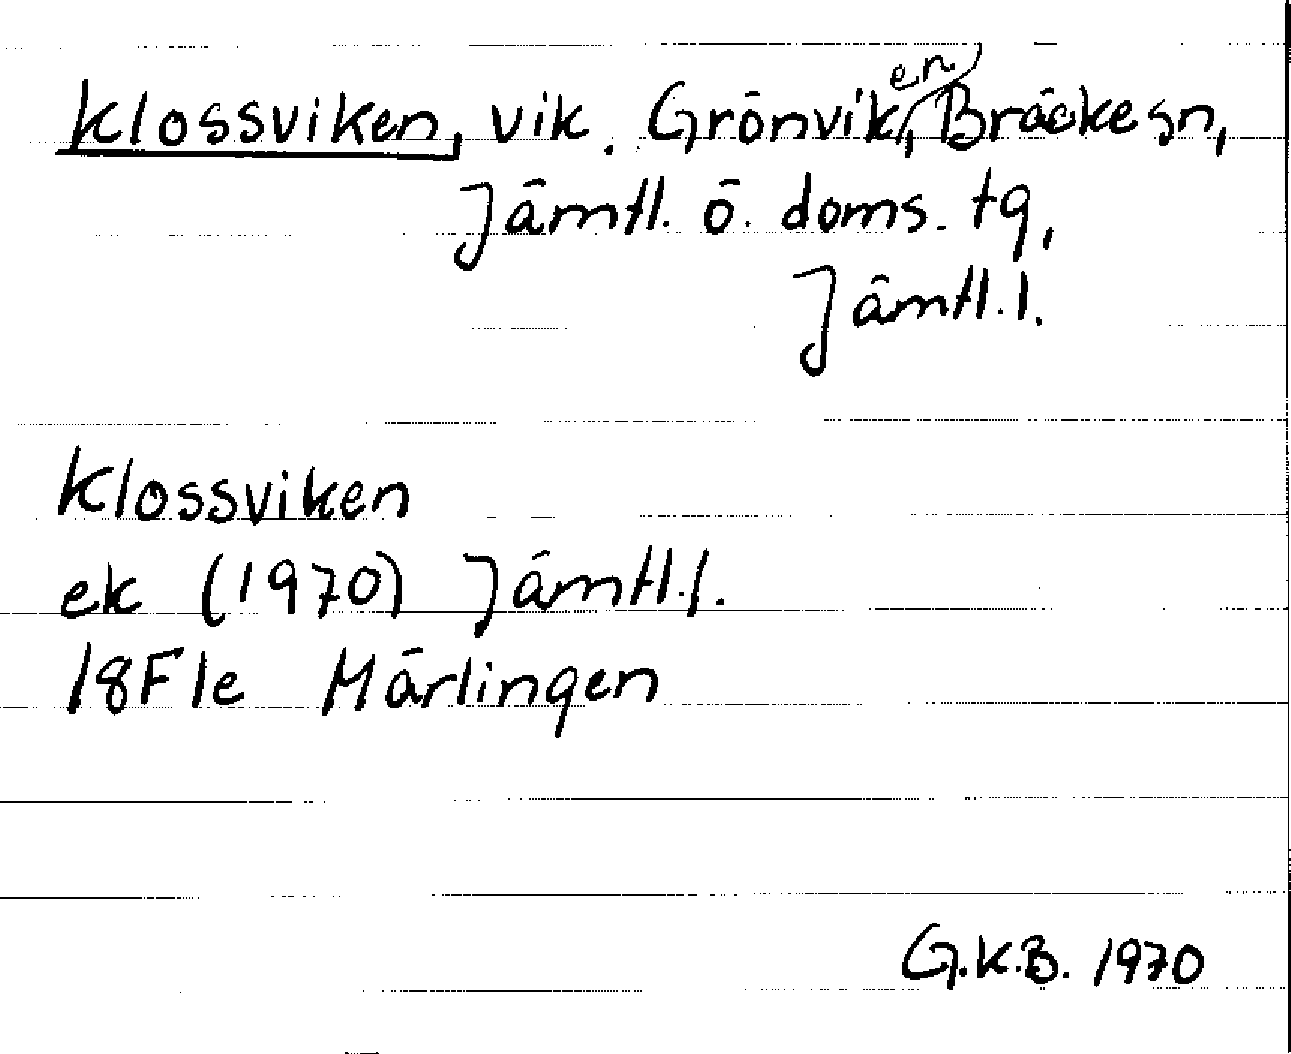 Klossviken, vik. Grönviken, Bräcke sn,
Jämtl. ö. doms. tg,
Jämtl. l.
Klossviken
ek (1970) Jämtl. l.
18F 1e Mårlingen
G.K.B. 1970